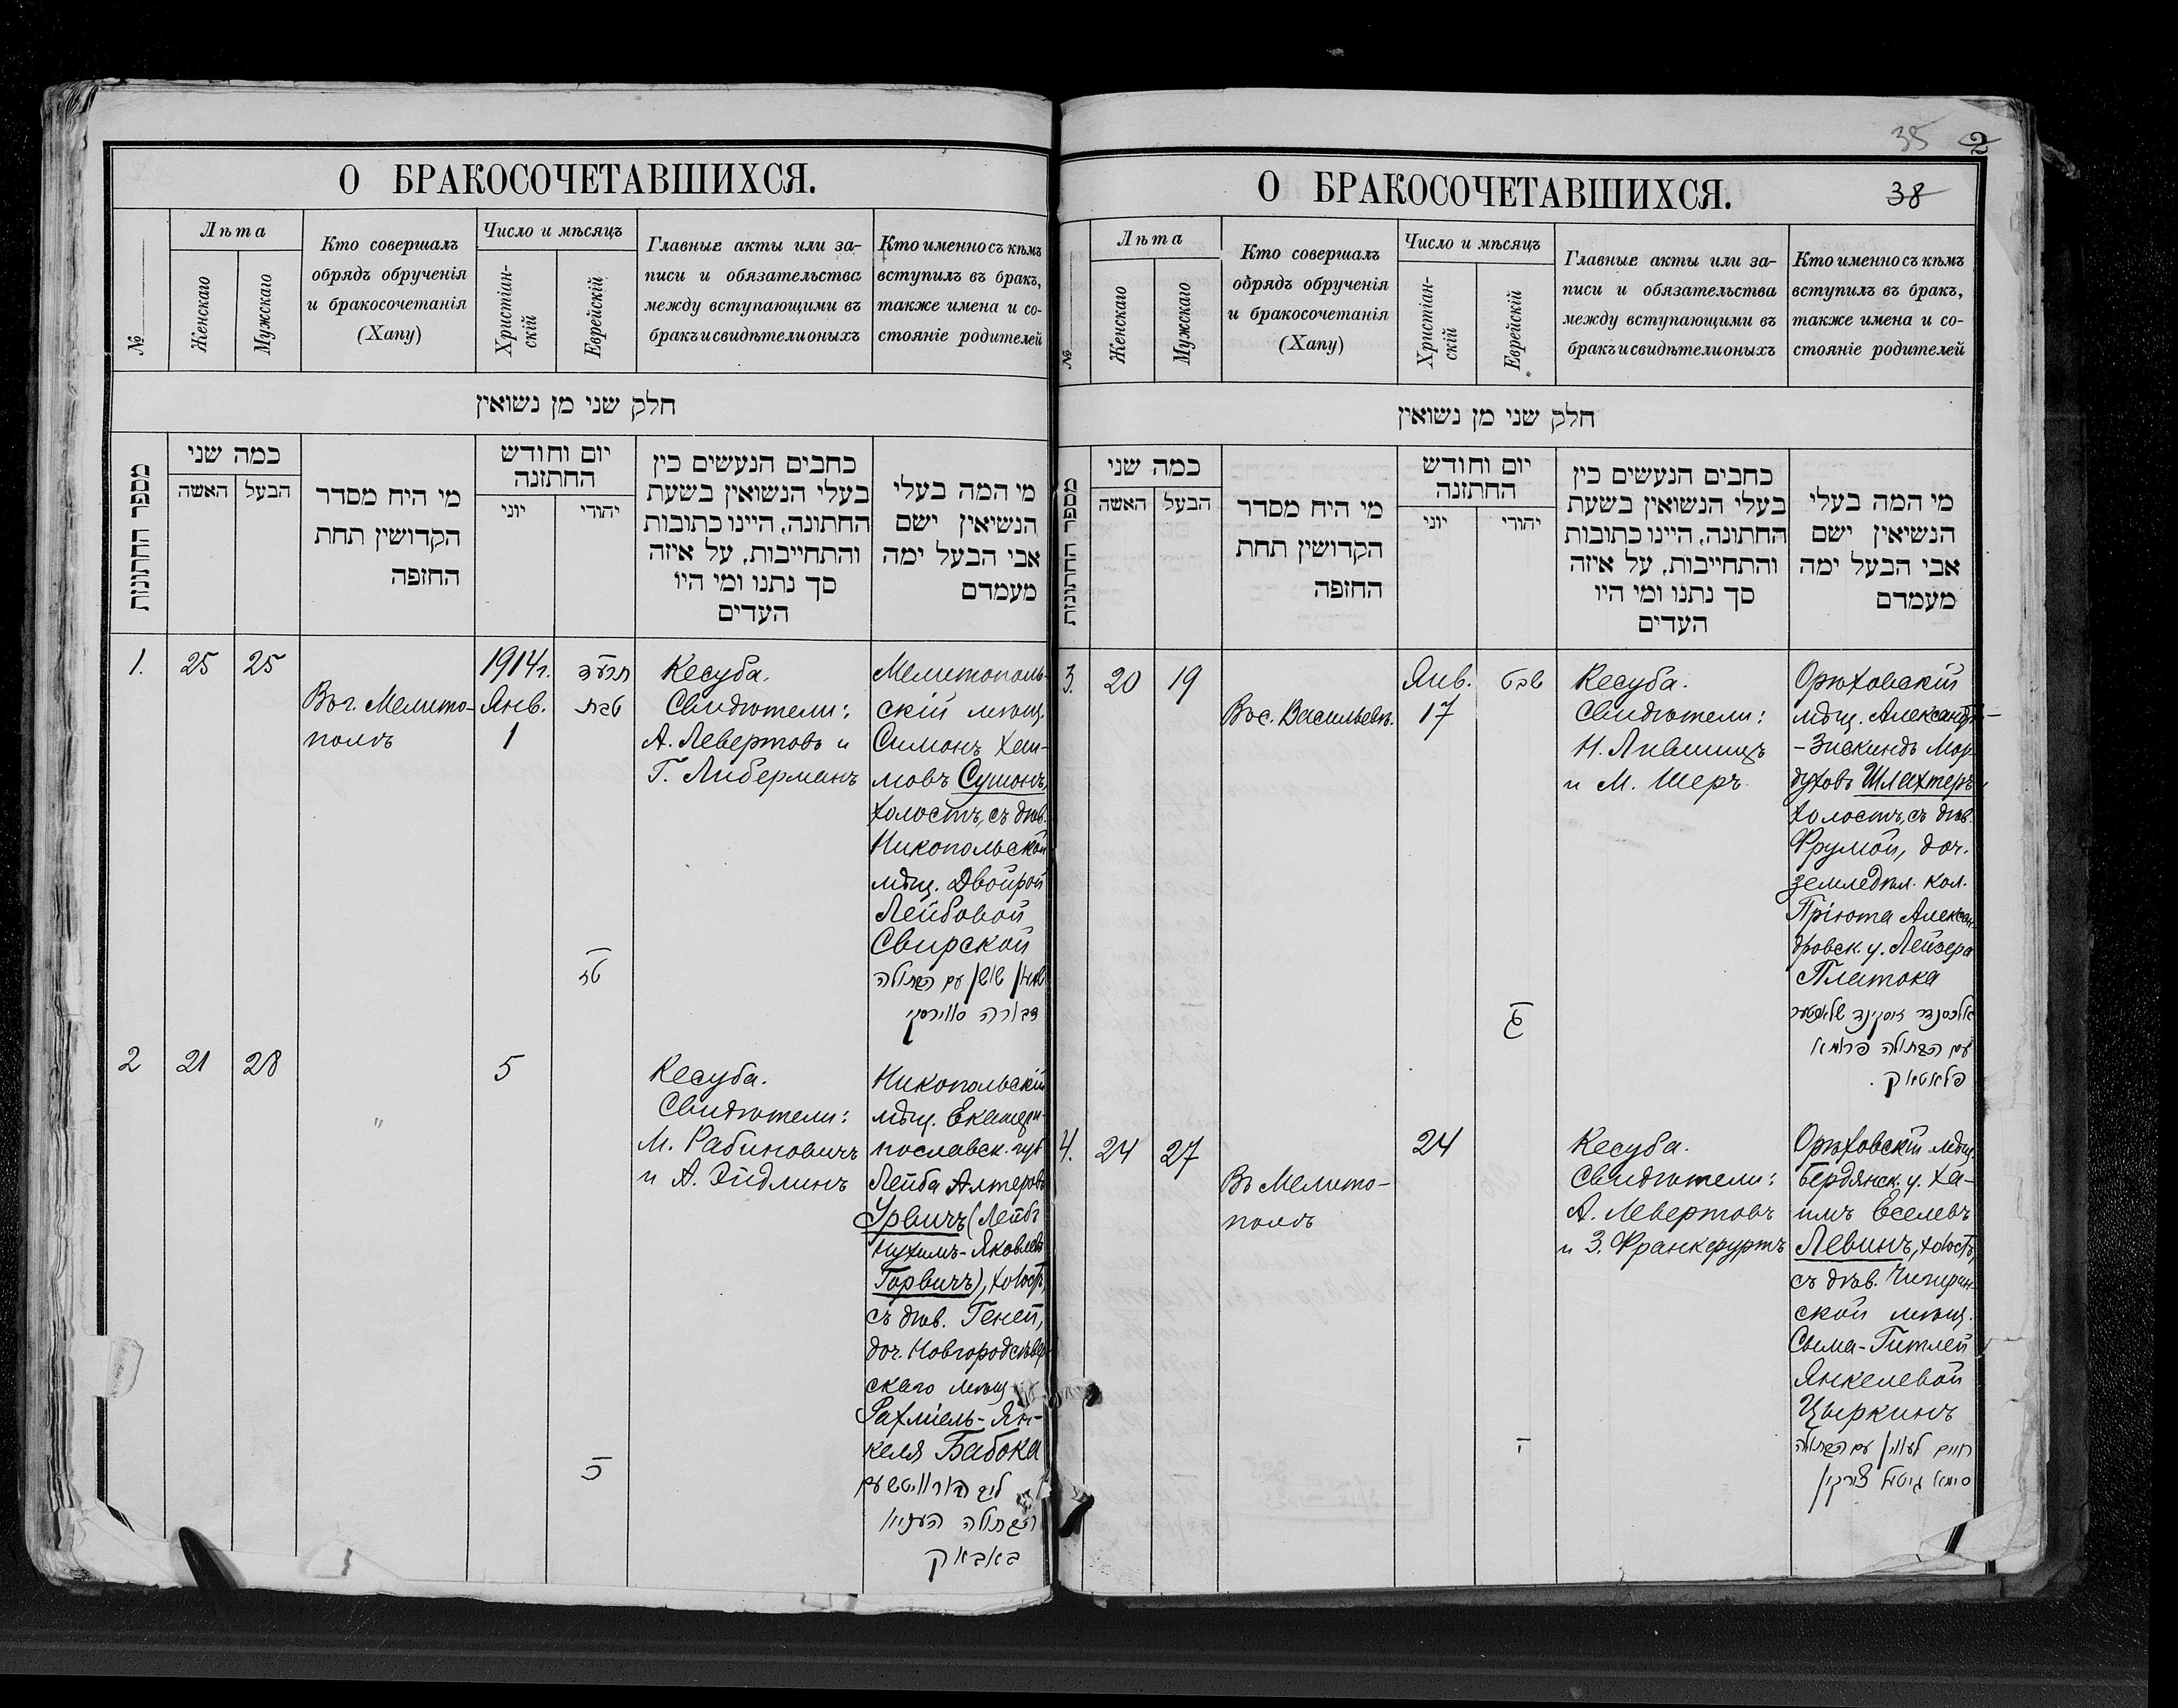 О БРАКОСОЧЕТАВШИХСЯ.
№
Лѣта
Женскаго
Мужскаго
Кто совершалъ
обрядъ обрученія
и бракосочетанія
(Хапу)
Число и мѣсяцъ
Христіан-
скій
Еврейскій
Главные акты или за-
писи и обязательства
между вступающими въ
бракъ и свидѣтели оныхъ
Кто именно съ кѣмъ
вступилъ въ бракъ,
также имена и со-
стояніе родителей
חלק שני מן נשואין
מספר החתונות
כמה שני
האשה
הבעל
מי היח מסדר
הקדושין תחת
החזפה
יום וחודש
החתזנה
יוני
יהודי
כחבים הנעשים כין
בעלי הנשואין בשעת
החתונה, היינו כתובות
והתחייבות, על איזה
סך נתנו ומי היו
העדים
מי המה בעלי
הנשיאין ישם
אבי הבעל ימה
מעמדם
1.
25
25
Въ г. Мелито-
полѣ
1914 г.
Янв.
1
תרע״ד
טבת
טז
Кесуба.
Свидѣтели:
А. Левертовъ и
Г. Либерманъ
Мелитополь-
скій мѣщ.
Симонъ Хаи-
мовъ Сушонъ,
холостъ, съ дѣв.
Никопольской
мѣщ. Двойрой
Лейбовой
Свирской
שמעון שושן עם הבתולה
דבורה סווירסקי
2
21
28
"
5
כ
Кесуба.
Свидѣтели:
М. Рабиновичъ
и А. Эйдлинъ
Никопольскій
мѣщ. Екатери-
нославск. губ
Лейба Алтеровъ
Урвичъ (Лейбъ
Нухимъ-Яковлевъ
Горвичъ), холостъ,
съ дѣв. Геней,
доч. Новгородсѣвер-
скаго мѣщ
Рахміель-Ян-
келя Бабока
ליב הורוויטש עם
הבתולה העניא
באבאק
35
2
38
О БРАКОСОЧЕТАВШИХСЯ.
№
Лѣта
Женскаго
Мужскаго
Кто совершалъ
обрядъ обрученія
и бракосочетанія
(Хапу)
Число и мѣсяцъ
Христіан-
скій
Еврейскій
Главные акты или за-
писи и обязательства
между вступающими въ
бракъ и свидѣтели оныхъ
Кто именно съ кѣмъ
вступилъ въ бракъ,
также имена и со-
стояніе родителей
חלק שני מן נשואין
מספר החתונות
כמה שני
האשה
הבעל
מי היח מסדר
הקדושין תחת
החזפה
יום וחודש
החתזנה
יוני
יהודי
כחבים הנעשים כין
בעלי הנשואין בשעת
החתונה, היינו כתובות
והתחייבות, על איזה
סך נתנו ומי היו
העדים
מי המה בעלי
הנשיאין ישם
אבי הבעל ימה
מעמדם
3.
20
19
Въ с. Васильевк.
Янв.
17
שבט
Кесуба.
Свидѣтели:
Н. Лившицъ
и М. Шеръ
Орѣховскій
мѣщ. Александръ-
-Зискиндъ Мор-
духовъ Шлахтеръ
холостъ, съ дѣв.
Фрумой, доч.
земледѣл. кол.
Пріюта Алексан-
дровск. у. Лейзера
Платока
אלכסנדר זוסקינד שלאכטער
עם הבתולה פרומא
פלאטאק.
4.
24
27
Въ Мелито-
полѣ
24
י
Кесуба.
Свидѣтели:
А. Левертовъ
и З. Франкфуртъ
Орѣховскій мѣщ.
Бердянск. у. Ха-
имъ Еселевъ
Левинъ, холостъ,
съ дѣв. Чигирин-
ской мѣщ.
Сыма-Гитлей
Янкелевой
Цыркинъ
חיים לעווין עם הבתולה
סימא גיטל צירקין